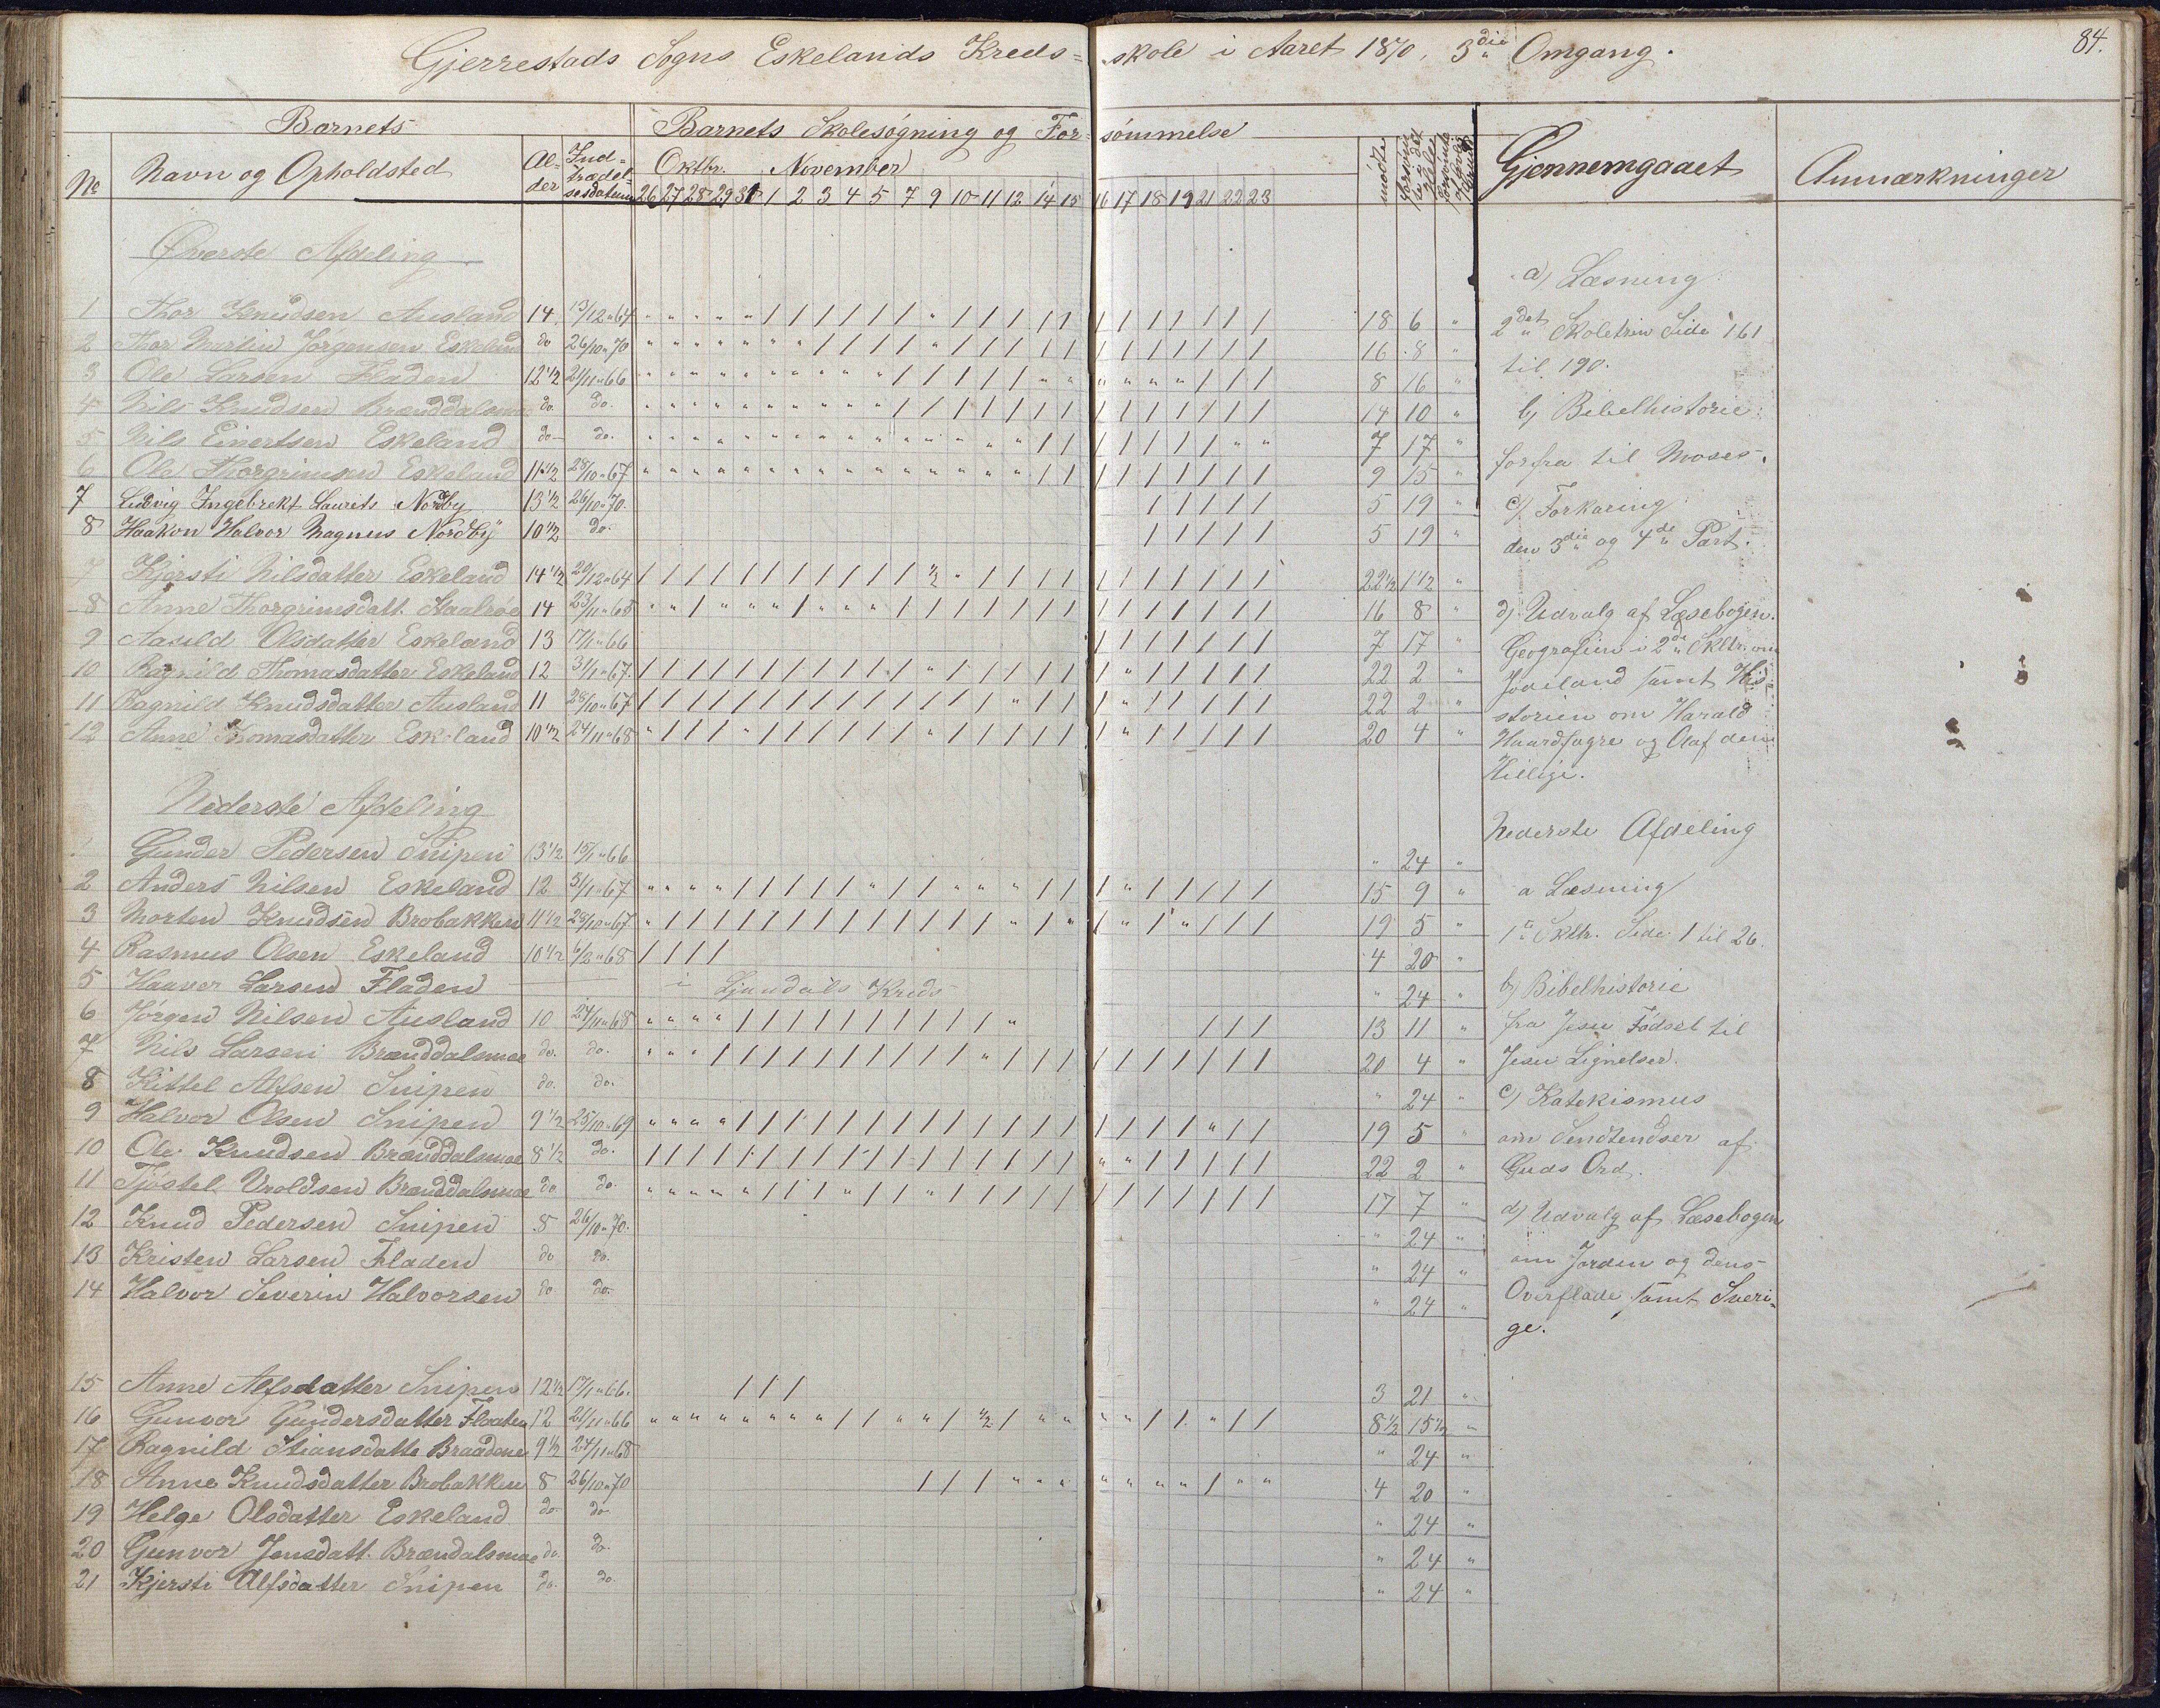 84.
Gjerrestads Sogns Eskelands Kreds= skole i Aaret 1870, 3die Omgang.
Barnets Barnets Skolesøgning og For= sømmelse
No Navn og Opholdsted Al=der Ind=trædel=sesdatum Oktbr. November mødte Gjennemgaaet Anmærkninger
26 27 28 29 31 1 2 3 4 5 7 9 10 11 12 14 15 16 17 18 19 21 22 23
Øverste Afdeling
1 Thor Knudsen Ausland 14 13/12 64 18 6 "
2 Thor Martin Jørgensen Eskeland do 26/10 70 16 8 "
3 Ole Larsen Fladen 12 1/2 21/11 66 8 16 "
4 Nils Knudsen Brænddalsmoe do. do. 14 10 "
5 Nils Einertsen Eskeland do do. 7 17 "
6 Ole Thorgrimsen Eskeland 11 1/2 28/10 67 9 15 "
7 Ludvig Ingebrekt Laurits Nordby 13 1/2 26/10 70. 5 19 "
8 Haakon Halvor Magnus Nordby 10 1/2 do. 5 19 "
7 Kjersti Nilsdatter Eskeland 14 1/2 20/12 64 22 1/2 1 1/2 "
8 Anne Thorgrimsdatt. Staalrøe 14 23/11 65 16 8 "
9 Aasild Olsdatter Eskeland 13 17/1 66 7 17 "
10 Ragnild Thomasdatter Eskeland 12 31/1 67. 22 2 "
11 Ragnild Knudsdatter Ausland 11 28/10 67 22 2 "
12 Anne Thomasdatter Eskeland 10 1/2 24/11 68 20 4 "
Nederste Afdeling
Gunder Pedersen Snipen 13 1/2 15/1 66 " 24 "
2 Anders Nilsen Eskeland 12 31/1 67 15 9 "
3 Morten Knudsen Brobakken 11 1/2 28/10 67. 19 5 "
4 Rasmus Olsen Eskeland 10 1/2 6/2 68 4 20 "
5 Haaver Larsen Fladen i Ljandals Kreds " 24 "
6 Jørgen Nilsen Ausland 10 24/11 68 13 11 "
7 Nils Larsen Brænddalsmoe do. do. 20 4 "
8 Kittel Alfsen Snipen do. do. " 24 "
9 Halvor Olsen Snipen 9 1/2 25/10 69 19 5 "
10 Ole Knudsen Brænddalsmoe 8 1/2 do. 22 2 "
11 Tjøstel Uroldsen Brænddalsmoe do do. 17 7 "
12 Knud Pedersen Snipen 8 26/10 70. " 24 "
13 Kristen Larsen Fladen do do. " 24 "
14 Halvor Severin Halvorsen do do. " 24 "
15 Anne Alfsdatter Snipen 12 1/2 17/1 66. 3 21 "
16 Gunvor Gundersdatter Floaten 12 21/11 66 8 1/2 15 1/2 "
17 Ragnild Stiansdatte Braadene 9 1/2 24/11 68 " 24 "
18 Anne Knudsdatter Brobakken 8 26/10 70 4 20 "
19 Helge Olsdatter Eskeland do do " 24 "
20 Gunvor Jensdatt. Brændalsmoe do. do. " 24 "
21 Kjersti Alfsdatter Snipen do. do. " 24 "
a) Læsning:
2det Skoletrin Side 161
til 190.
b) Bibelhistorie:
forfra til Moses.
c) Forklaring:
den 3die og 4de Part.
d) Udvalg af Læsebogen.
Geografien i 2de Skltr. om
Jødeland samt Hi=
storien om Harald
Haardfagre og Olaf den
Hellige.
Nederste Afdeling
a Læsning
1ste Skltr. Side 1 til 26.
b) Bibelhistorie
fra Jesu Fødsel til
Jesu Lignelser.
c) Katekismus
om Sendtendser af
Guds Ord.
d) Udvalg af Læsebogen
om Jorden og dens
Overflade samt Sveri=
ge.